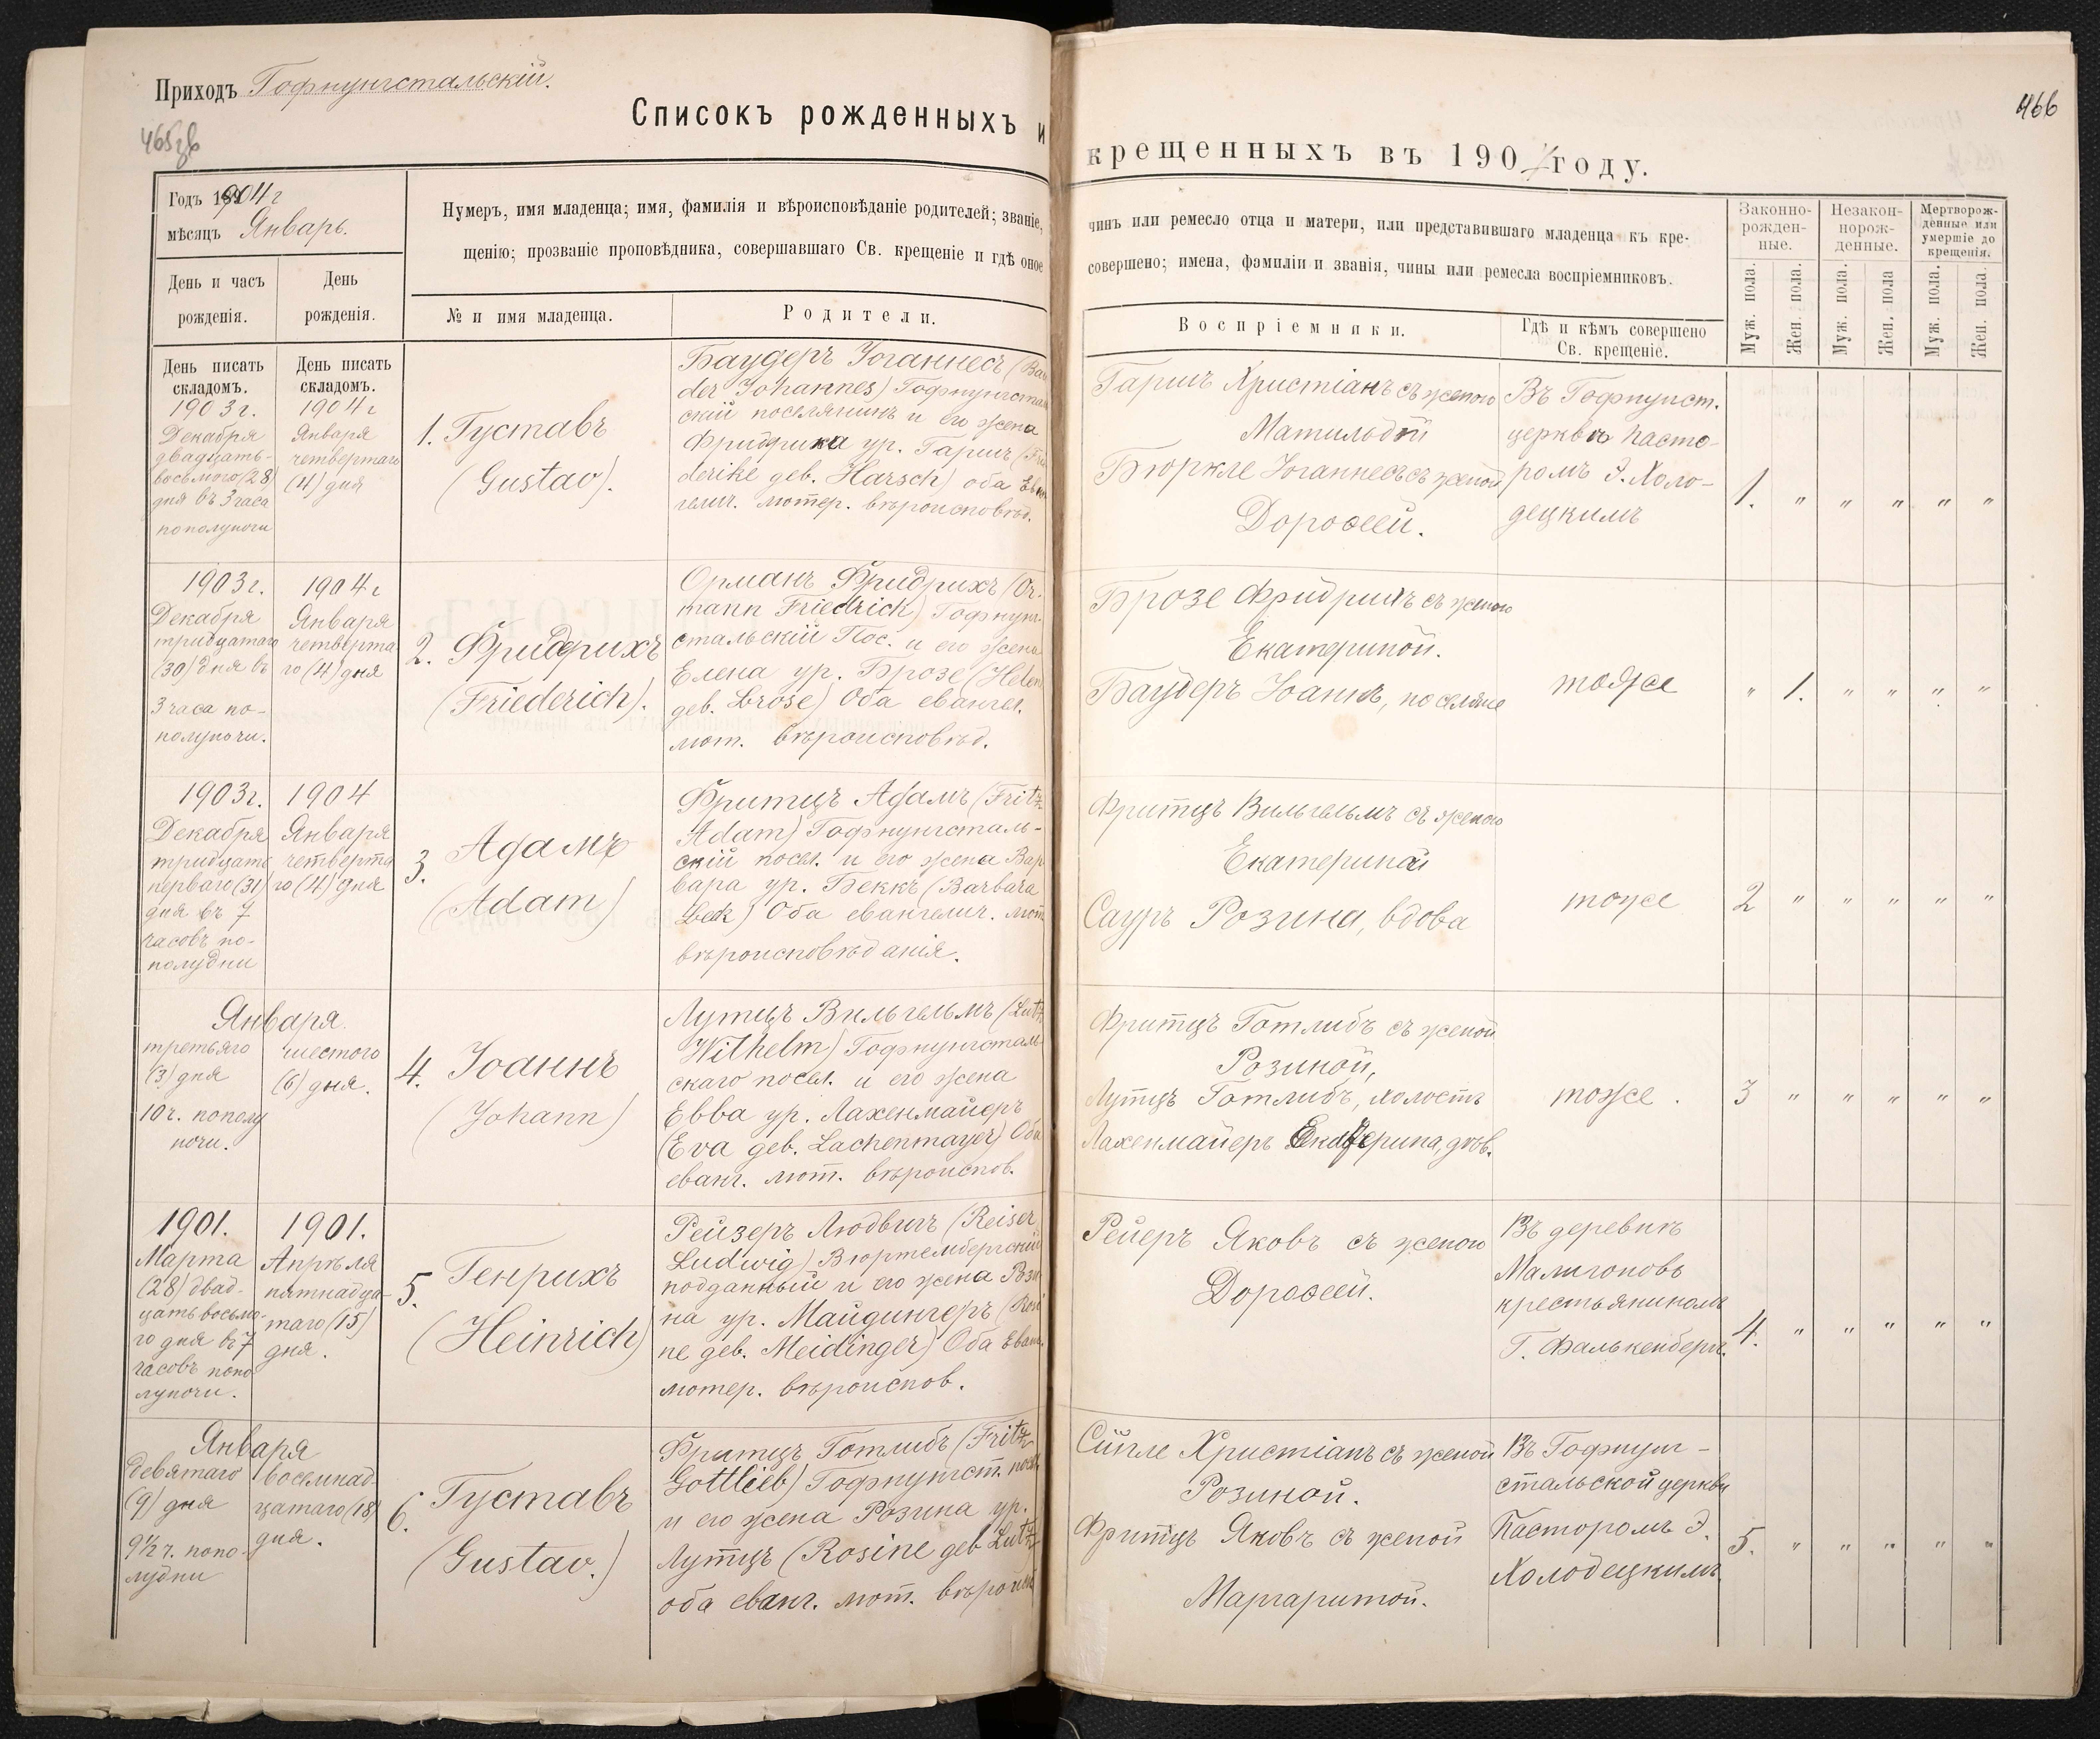 Приходъ Гофнунгстальскій.
465 об
Списокъ рожденныхъ и
Годъ 1904 г
мѣсяцъ Январь.
Нумеръ, имя младенца; имя, фамилія и вѣроисповѣданіе родителей; званіе,
щенію; прозваніе проповѣдника, совершавшаго Св. крещеніе и гдѣ оное
День и часъ
рожденія.
День
рожденія.
№ и имя младенца.
Родители.
День писать
складомъ.
День писать
складомъ.
1903 г.
Декабря
двадцать-
восьмого (28)
дня въ 3 часа
пополуночи
1904 г
Января
четвертаго
(4) дня
1. Густавъ
(Gustav).
Баудеръ Іоганнесъ (Bau
der Johannes) Гофнунгсталь
скій поселянинъ и его жена
Фридрика ур. Гаршъ (Frie
derike geb. Harsch) оба Еван
гелич. лютер. вѣроисповѣд.
1903 г.
Декабря
тридцатаго
(30) дня въ
3 часа по-
полуночи.
1904 г
Января
четверта
го (4) дня
2. Фридрихъ
(Friederich).
Орманъ Фридрихъ (Or-
mann Friedrich) Гофнунг-
стальскій Пос. и его жена
Елена ур. Брозе (Helen
geb. Brose) Оба евангел.
лют. вѣроисповѣд.
1903 г.
Декабря
тридцать
перваго (31)
дня въ 7
часовъ по-
полудни
1904
Января
четверта
го (4) дня
3. Адамъ
(Adam)
Фритцъ Адамъ (Fritz
Adam) Гофнунгсталь-
скій посел. и его жена Вар
вара ур. Беккъ (Barbara
Beck) Оба евангелич. лют
вѣроисповѣданія.
Января
третьяго
(3) дня
10 ч. пополу
ночи.
шестого
(6) дня.
4. Іоаннъ
(Johann)
Лутцъ Вильгельмъ (Lutz
Wilhelm) Гофнунгсталь
скаго посел. и его жена
Евва ур. Лахенмайеръ
(Eva geb. Lachenmayer) Оба
еванг. лют. вѣроиспов.
1901.
Марта
(28) двад-
цать восьмо-
го дня въ 7
часовъ попо
луночи.
1901.
Апрѣля
пятнадца-
таго (15)
дня.
5. Генрихъ
(Heinrich)
Рейзеръ Людвигъ (Reiser
Ludwig) Вюртембергскій
подданный и его жена Рози
на ур. Майдингеръ (Rosi
ne geb. Meidinger) Оба Еванг.
лютер. вѣроиспов.
Января
девятаго
(9) дня
9½ ч. попо-
лудни
восемнад-
цатаго (18)
дня.
6. Густавъ
(Gustav.)
Фритцъ Готлибъ (Fritz
Gottlieb) Гофнунгст. посел
и его жена Розина ур.
Лутцъ (Rosine geb Lutz
оба еванг. лют. вѣроисп
466
крещенныхъ въ 1904 году.
чинъ или ремесло отца и матери, или представившаго младенца къ кре-
совершено; имена, фэмиліи и званія, чины или ремесла воспріемниковъ.
Воспріемники.
Гдѣ и кѣмъ совершено
Св. крещеніе.
Законно-
рожден-
ные.
Незакон-
норож-
денные.
Мертворож-
денные или
умершіе до
крещенія.
Муж. пола.
Жен. пола.
Муж. пола.
Жен. пола
Муж. пола.
Жен. пола.
Гаршъ Христіанъ съ женою
Матильдой
Бюркле Іоганнесъ съ женой
Дороѳеей.
Въ Гофнунгст.
церкви пасто-
ромъ Э. Холо-
децкимъ
1. " " " " "
Брозе Фридрихъ съ женою
Екатериной.
Баудеръ Іоаннъ, поселяне
тоже
" 1. " " " "
Фритцъ Вильгельмъ съ женою
Екатериной
Сауръ Розина, вдова
тоже
2 " " " " "
Фритцъ Готлибъ съ женой
Розиной,
Лутцъ Готлибъ, холостъ
Лахенмайеръ Екатерина, дѣв.
тоже.
3 " " " " "
Рейеръ Яковъ съ женою
Дороѳеей.
Въ деревнѣ
Малигоновъ
крестьяниномъ
Г. Фалькенбергъ.
4. " " " " "
Сигле Христіанъ съ женой
Розиной.
Фритцъ Яковъ съ женой
Маргаритой.
Въ Гофнунг-
стальской церкви
Пасторомъ Э.
Холодецкимъ
5. " " " " "